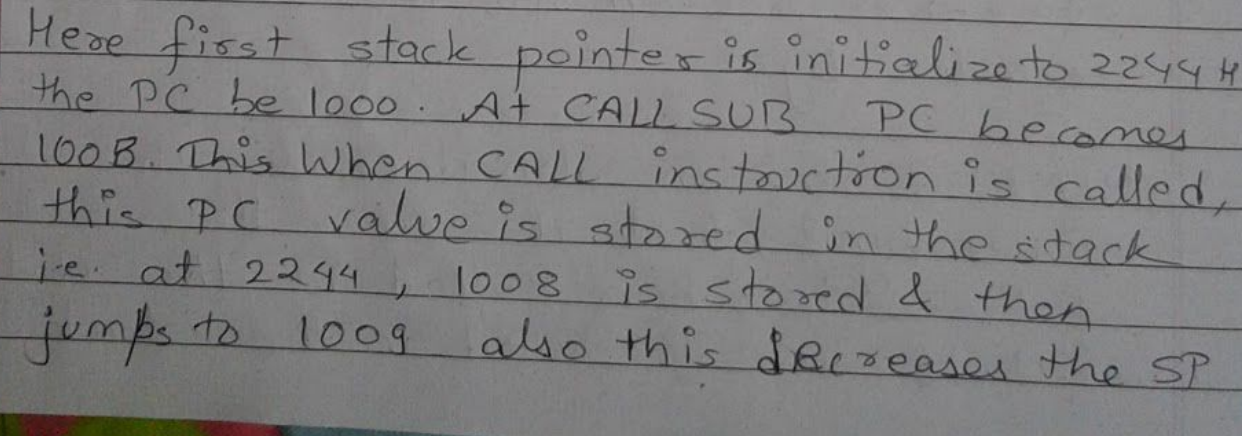 Here first stack pointer is initialize to 2244 H
the PC be 1000. At CALL SUB PC becomes
1008. This When CALL instruction is called,
this PC value is stored in the stack
i.e. at 2244, 1008 is stored & then
jumps to 1009 also this decreases the SP